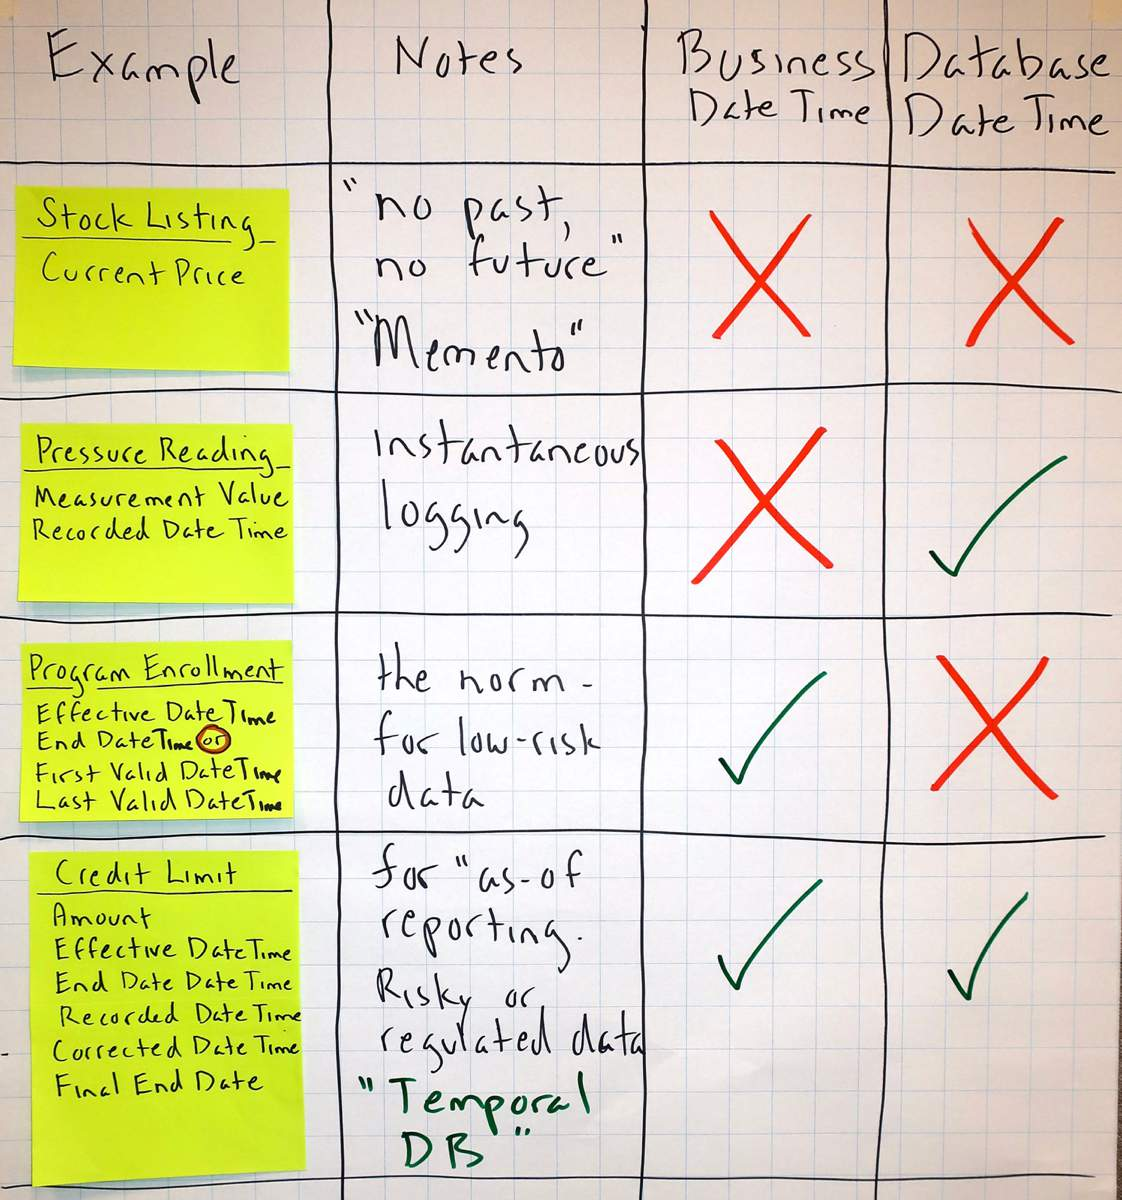 Example
Notes
Business
Date Time
Database
Date Time
Stock Listing
Current Price
"no past,
no future"
"Memento"
Pressure Reading
Measurement Value
Recorded Date Time
Instantaneous
logging
Program Enrollment
Effective DateTime
End DateTime or
First Valid DateTime
Last Valid DateTime
the norm -
for low-risk
data
Credit Limit
Amount
Effective DateTime
End Date DateTime
Recorded DateTime
Corrected DateTime
Final End Date
for "as-of
reporting.
Risky or
regulated data
"Temporal
DB"